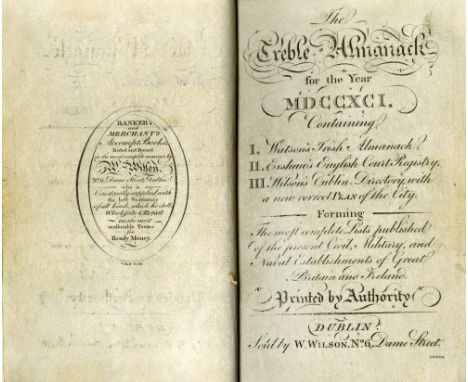 BANKER's
and
MERCHANT's
Accompt Books,
Ruled and Bound
in the most complete manner, by
W. Wilson,
No. 6, Dame Street, Dublin;
who is
Constantly supplied with
the best Stationary
of all kinds, which he sells
Wholesale & Retail
on the most
reasonable Terms
for
Ready Money.
The
Treble Almanack
for the Year
MDCCXCI.
Containing
I. Watson's Irish Almanack
II. Exshaw's English Court Registry,
III. Wilson's Dublin Directory, with
a new correct PLAN of the City.
Forming
The most complete Lists published
of the present Civil, Military, and
Naval Establishments of Great
Britain and Ireland.
Printed by Authority
DUBLIN
Sold by W. WILSON, No. 6, Dame Street.